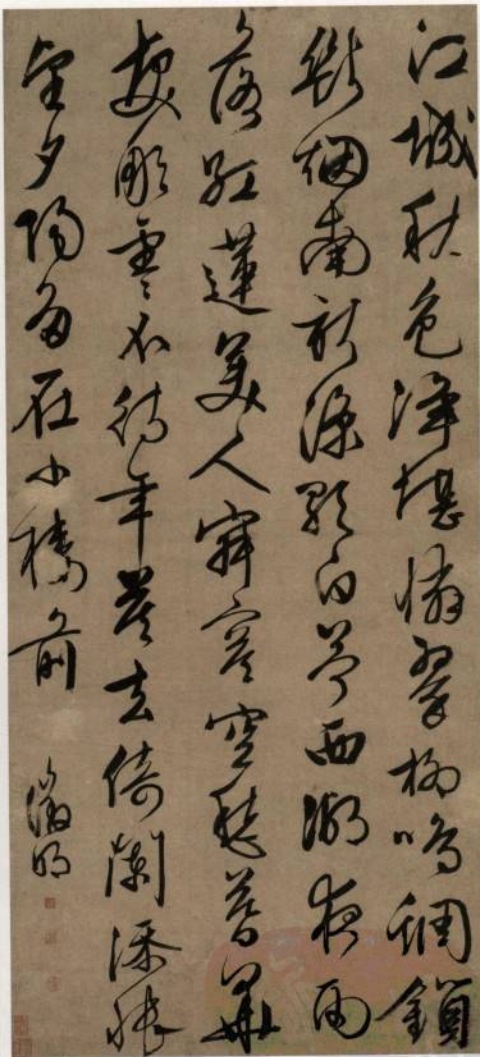 江城秋色淨堪憐翠柳鳴蜩鎖
斷烟南新涼歌白苧西湖夜雨
落紅蓮美人寂寞空愁暮華
髮彫零不待年莫去倚闌添悵
望夕陽多在小樓前
徵明